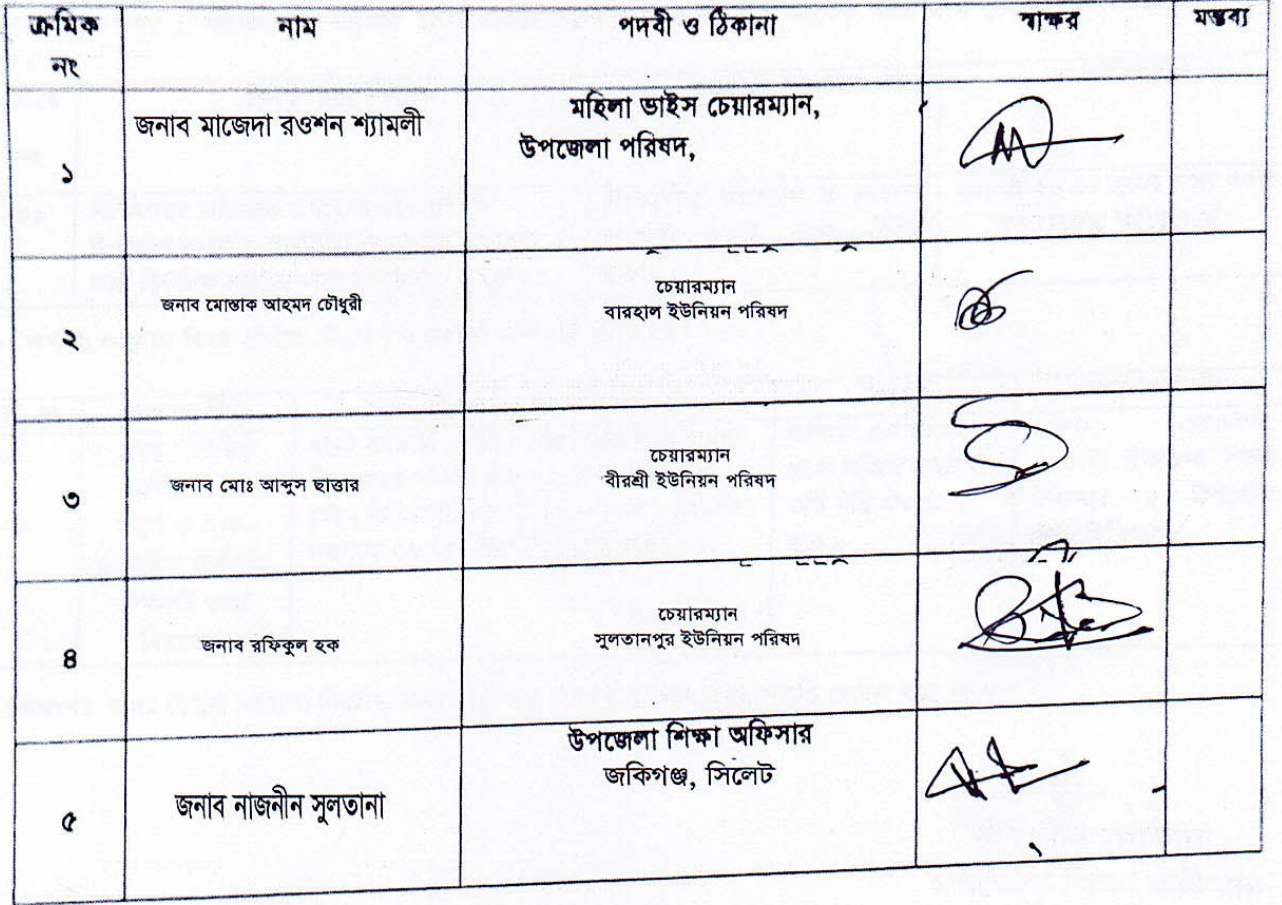 ক্রমিক নং নাম পদবী ও ঠিকানা স্বাক্ষর মন্তব্য
১ জনাব মাজেদা রওশন শ্যামলী মহিলা ভাইস চেয়ারম্যান,
উপজেলা পরিষদ,
২ জনাব মোস্তাক আহমদ চৌধুরী চেয়ারম্যান
বারহাল ইউনিয়ন পরিষদ
৩ জনাব মোঃ আব্দুস ছাত্তার চেয়ারম্যান
বীরশ্রী ইউনিয়ন পরিষদ
৪ জনাব রফিকুল হক চেয়ারম্যান
সুলতানপুর ইউনিয়ন পরিষদ
৫ জনাব নাজনীন সুলতানা উপজেলা শিক্ষা অফিসার
জকিগঞ্জ, সিলেট